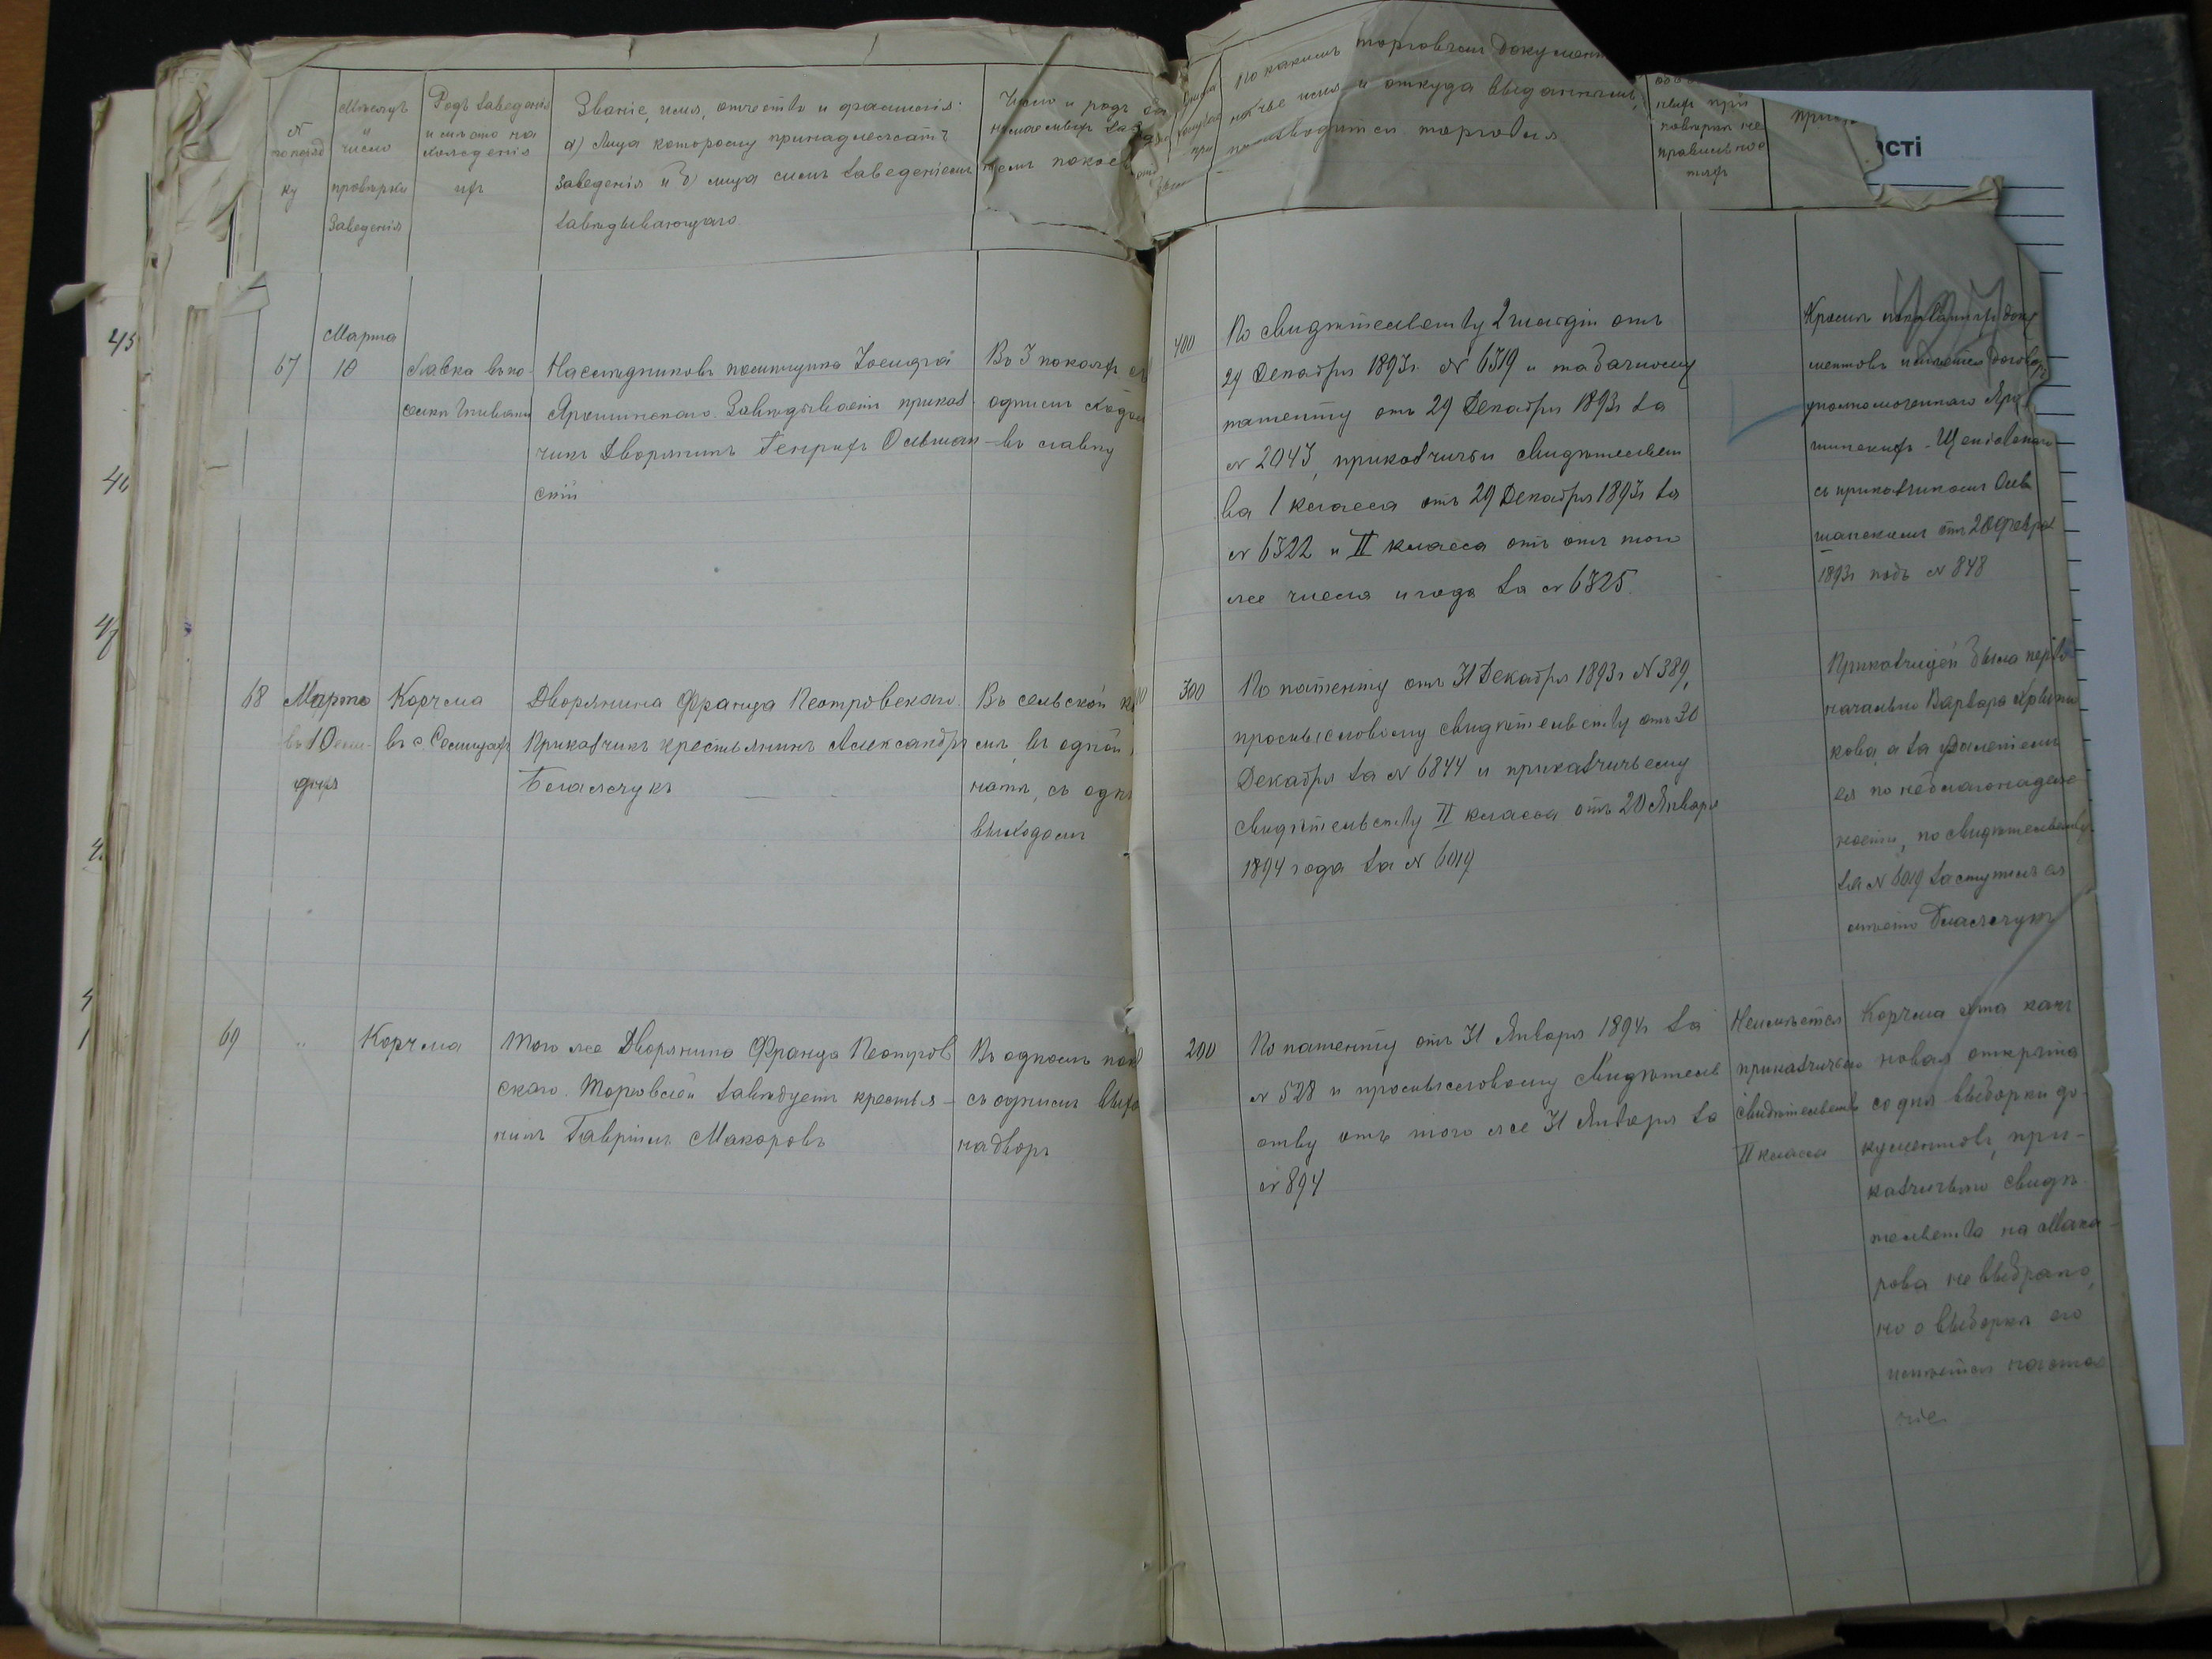 № по поряд
ку
Мѣсяцъ
и
число
провѣрки
Заведенія
Родъ заведенія
и мѣсто на
хожденія
ихъ
Званіе, имя, отчество и фамилія:
а) Лица которому принадлежатъ
заведенія и б) лица симъ заведеніемъ
завѣдывающаго
Число и родъ
покоев
По какимъ торговымъ документ
на чье имя и откуда выданнымъ,
производится торговля
при
повѣркѣ не
правильнос
тяхъ
сті
67
Марта
10
Лавка въ по
Наслѣдниковъ помѣщика Іосифа
Ярошинскаго. Завѣдываетъ приказ
чикъ Дворянинъ Генрихъ Ольшан
скій
Въ 3 покояхъ съ
однимъ ходом
въ лавку
400
По свидѣтельству 2 гильдіи отъ
29 Декабря 1893г. № 6319 и табачному
патенту отъ 29 Декабря 1893г за
№ 2043, приказчичьи свидѣтельст
ва 1 класса отъ 29 Декабря 1893г за
№ 6322 и II класса отъ отъ того
же числа и года за № 6325.
Кромѣ доку
ментовъ имѣется договоръ
уполномоченнаго Яро
шинскихъ - Щеніовскаго
съ приказчикомъ Оль
шанскимъ отъ 20 февраля
1893г подъ № 848
68
Марта
10
Корчма
въ с.
Дворянина Франца Піотровскаго.
Приказчикъ крестьянинъ Александръ
Бляжчукъ
Въ сельской
въ одной
натѣ, съ одн
выходомъ
300
По патенту отъ 31 Декабря 1893г № 389,
промысловому свидѣтельству отъ 30
Декабря за № 6844 и приказчичьему
свидѣтельству II класса отъ 20 Января
1894 года за № 6019
Приказчицей была перво
начально Варвара
кова, а за удаленіемъ
ея по неблагонадеж
ности, по свидѣтельству
за № 6019 заступилъ ея
мѣсто Бляжчукъ
69
"
Корчма
Того же Дворянина Франца Піотров
скаго. Торговлей завѣдуетъ крестья-
нинъ Гавріилъ Макаровъ
Въ одномъ пок
съ однимъ выхо
на дворъ
200
По патенту отъ 31 Января 1894г за
№ 528 и промысловому свидѣтель
ству отъ того же 31 Января за
№ 894
Неимѣется
приказчичьяго
свидѣтельств
II класса
Корчма эта какъ
новая открыта
со дня выборки до-
кументовъ, при-
казчичьяго свидѣ
тельства на Мака-
рова не выбрано,
но о выборкѣ его
имѣется настоя
ніе